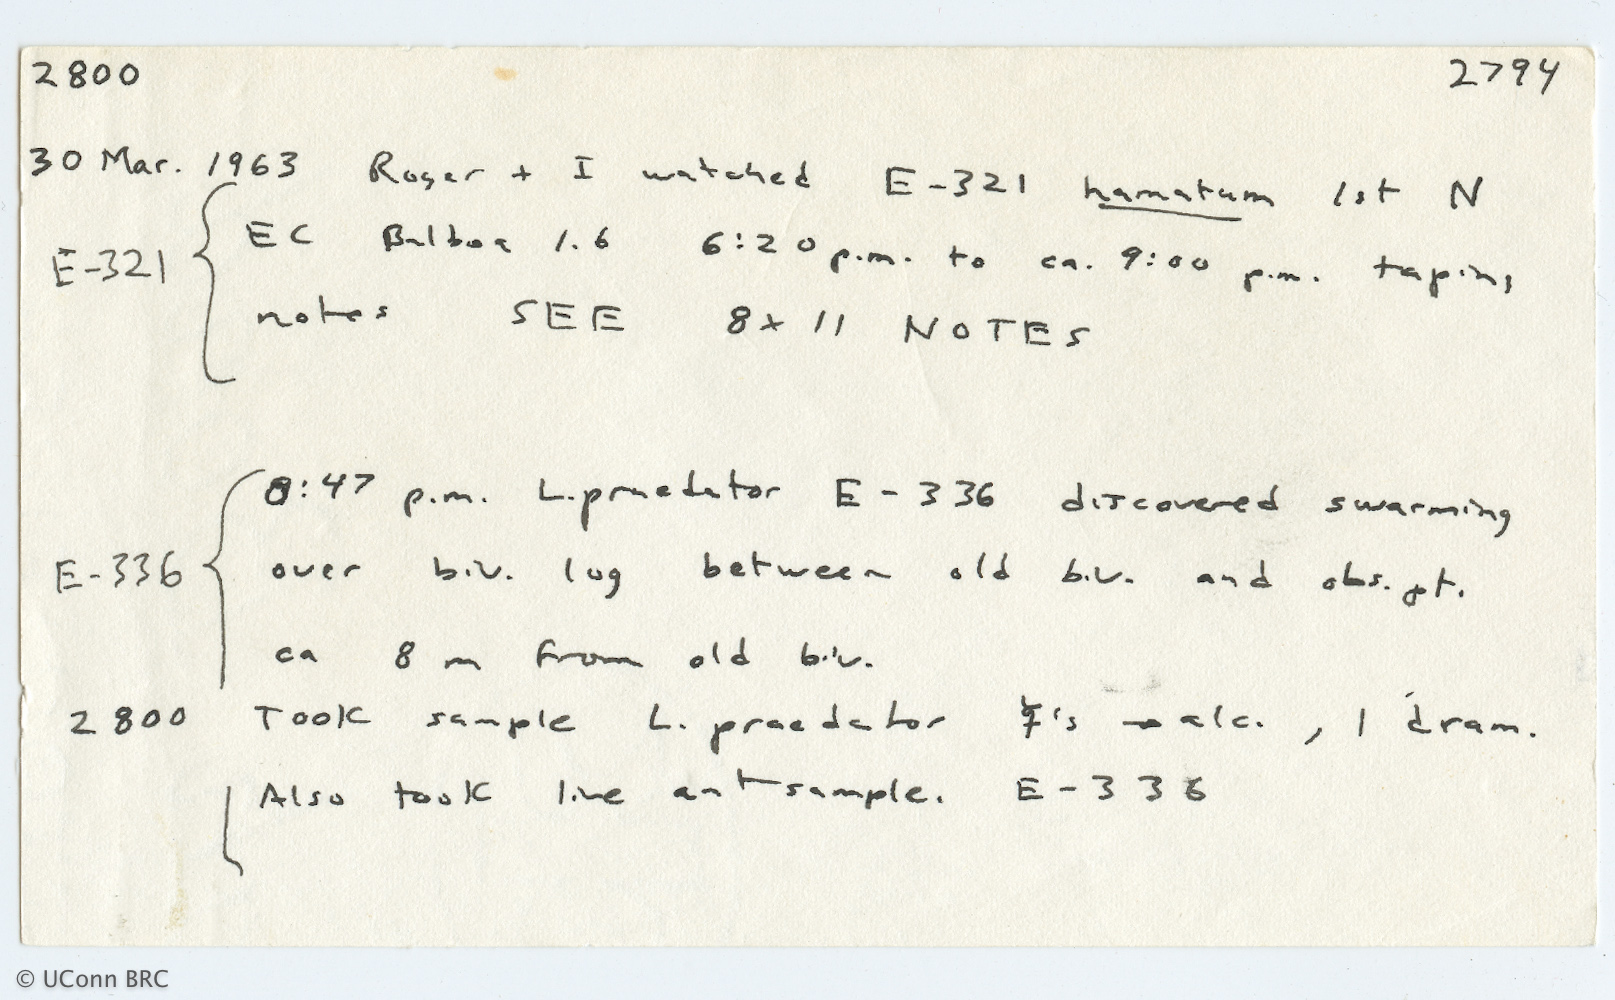 2800 2794
30 Mar. 1963 Roger + I watched E-321 hamatum 1st N
E-321 EC Balboa 1.6 6:20 p.m. to ca. 9:00 p.m. taping
notes SEE 8 x 11 NOTES
8:47 p.m. L. praedator E-336 discovered swarming
E-336 over biv. log between old biv. and obs. pt.
ca 8 m from old biv.
2800 Took sample L. praedator ☿'s → alc., 1 dram.
Also took live ant sample. E-336
© UConn BRC